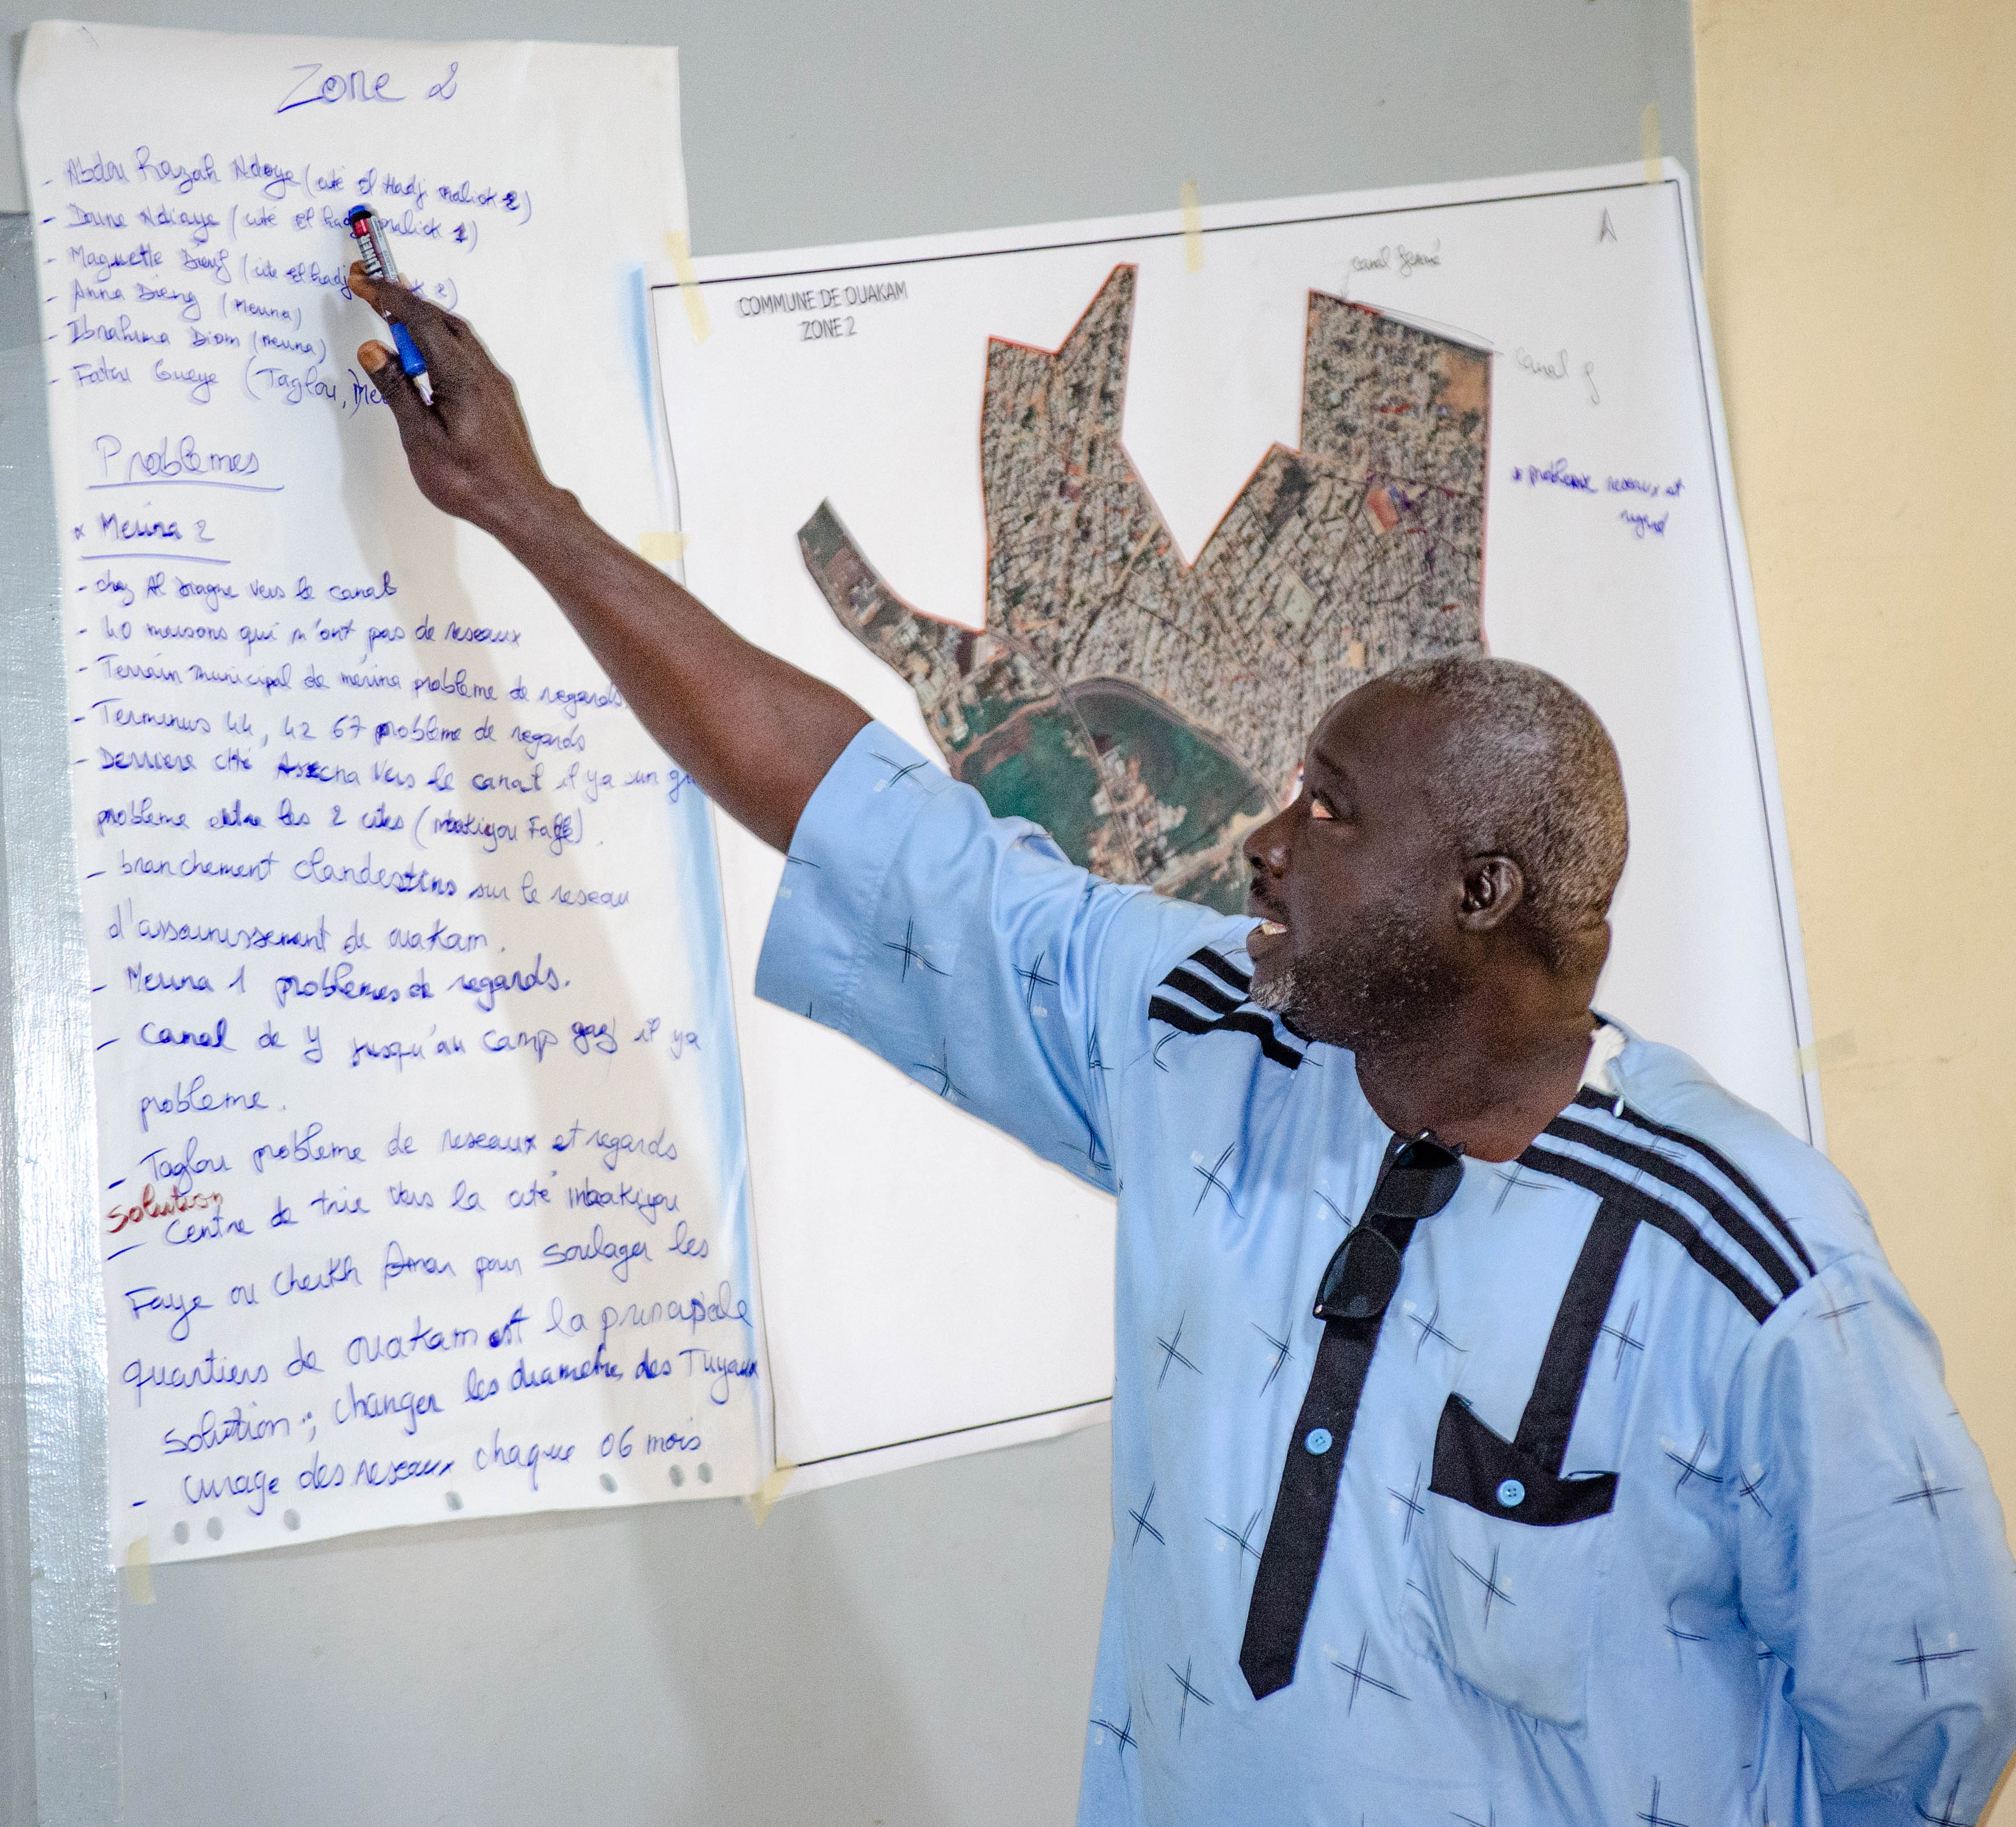 Zone 2
- Abdou Razah Ndoye (cité El Hadj malick 2)
- Doune Ndiaye (cité El hadj malick 1)
- Maguette Diouf (cité el hadj k 2)
- Anna Dieng (Merina)
- Ibrahima Diom (merina)
- Fatou Gueye (Taglou, Mer
Problemes
* Merina 2
- chez Al vers le canal
- 40 maisons qui n'ont pas de reseaux
- Terrain municipal de mérina probleme de regards
- Terminus 44, 42 67 probleme de regards
- Derriere cité Assecna vers le canal il ya un
probleme entre les 2 cités (mbakiyou Faye).
- branchement clandestins sur le reseau
d'assainissement de ouakam.
- Merina 1 problemes de regards.
- Canal de y jusqu'au camp gaz il ya
probleme.
- Taglou probleme de reseaux et regards
Solution
- Centre de trie vers la cité mbakiyou
Faye ou cheikh Amar pour soulager les
quartiers de ouakam est la principale
solution, changer les diametre des Tuyaux
- curage des reseaux chaque 06 mois
COMMUNE DE OUAKAM
ZONE 2
canal fermé
canal
* probleme reseaux et
regard